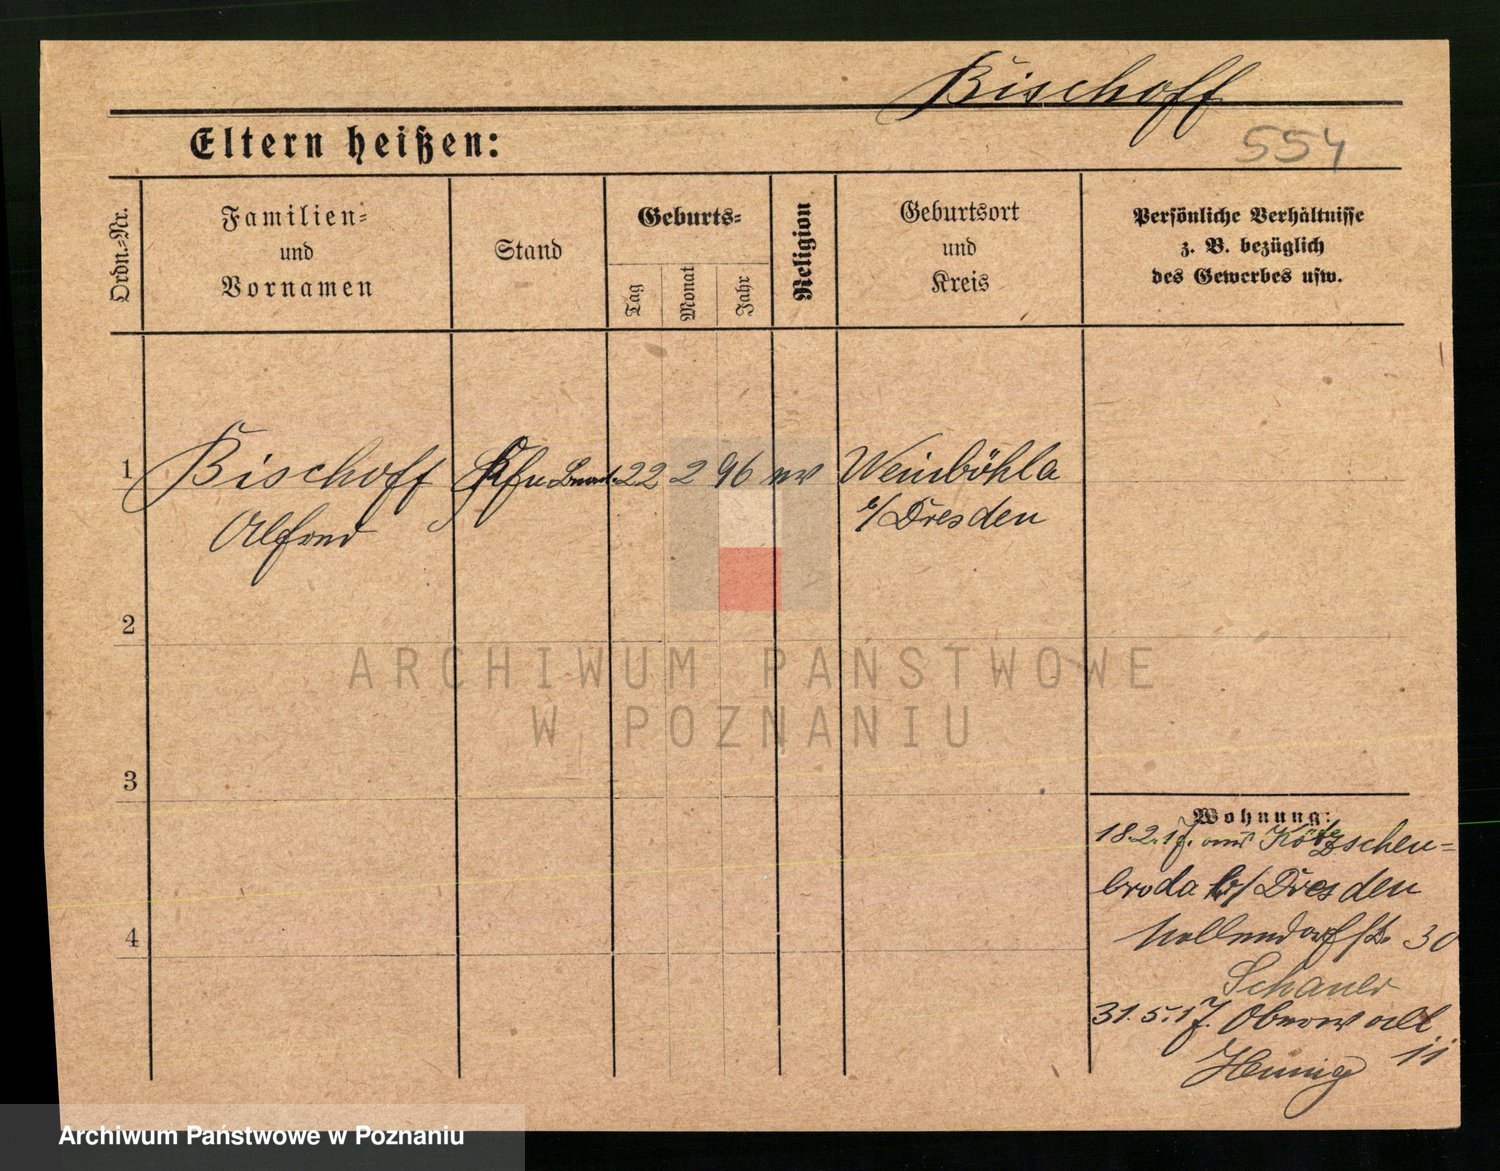 Bischoff
Eltern heißen:
554
Ordn.-Nr.
Familien-
und
Vornamen
Stand
Geburts-
Tag
Monat
Jahr
Religion
Geburtsort
und
Kreis
Persönliche Verhältnisse
z. B. bezüglich
des Gewerbes usw.
1
Bischoff
Alfred
22 2 96
Weinböhla
b/Dresden
2
ARCHIWUM PAŃSTWOWE
W POZNANIU
3
Wohnung:
18.2.17. aus Kötzschen-
broda b/Dresden
Hollendorfstr. 30
Schauer
31.5.17. Oberwall
11
Hennig
4
Archiwum Państwowe w Poznaniu